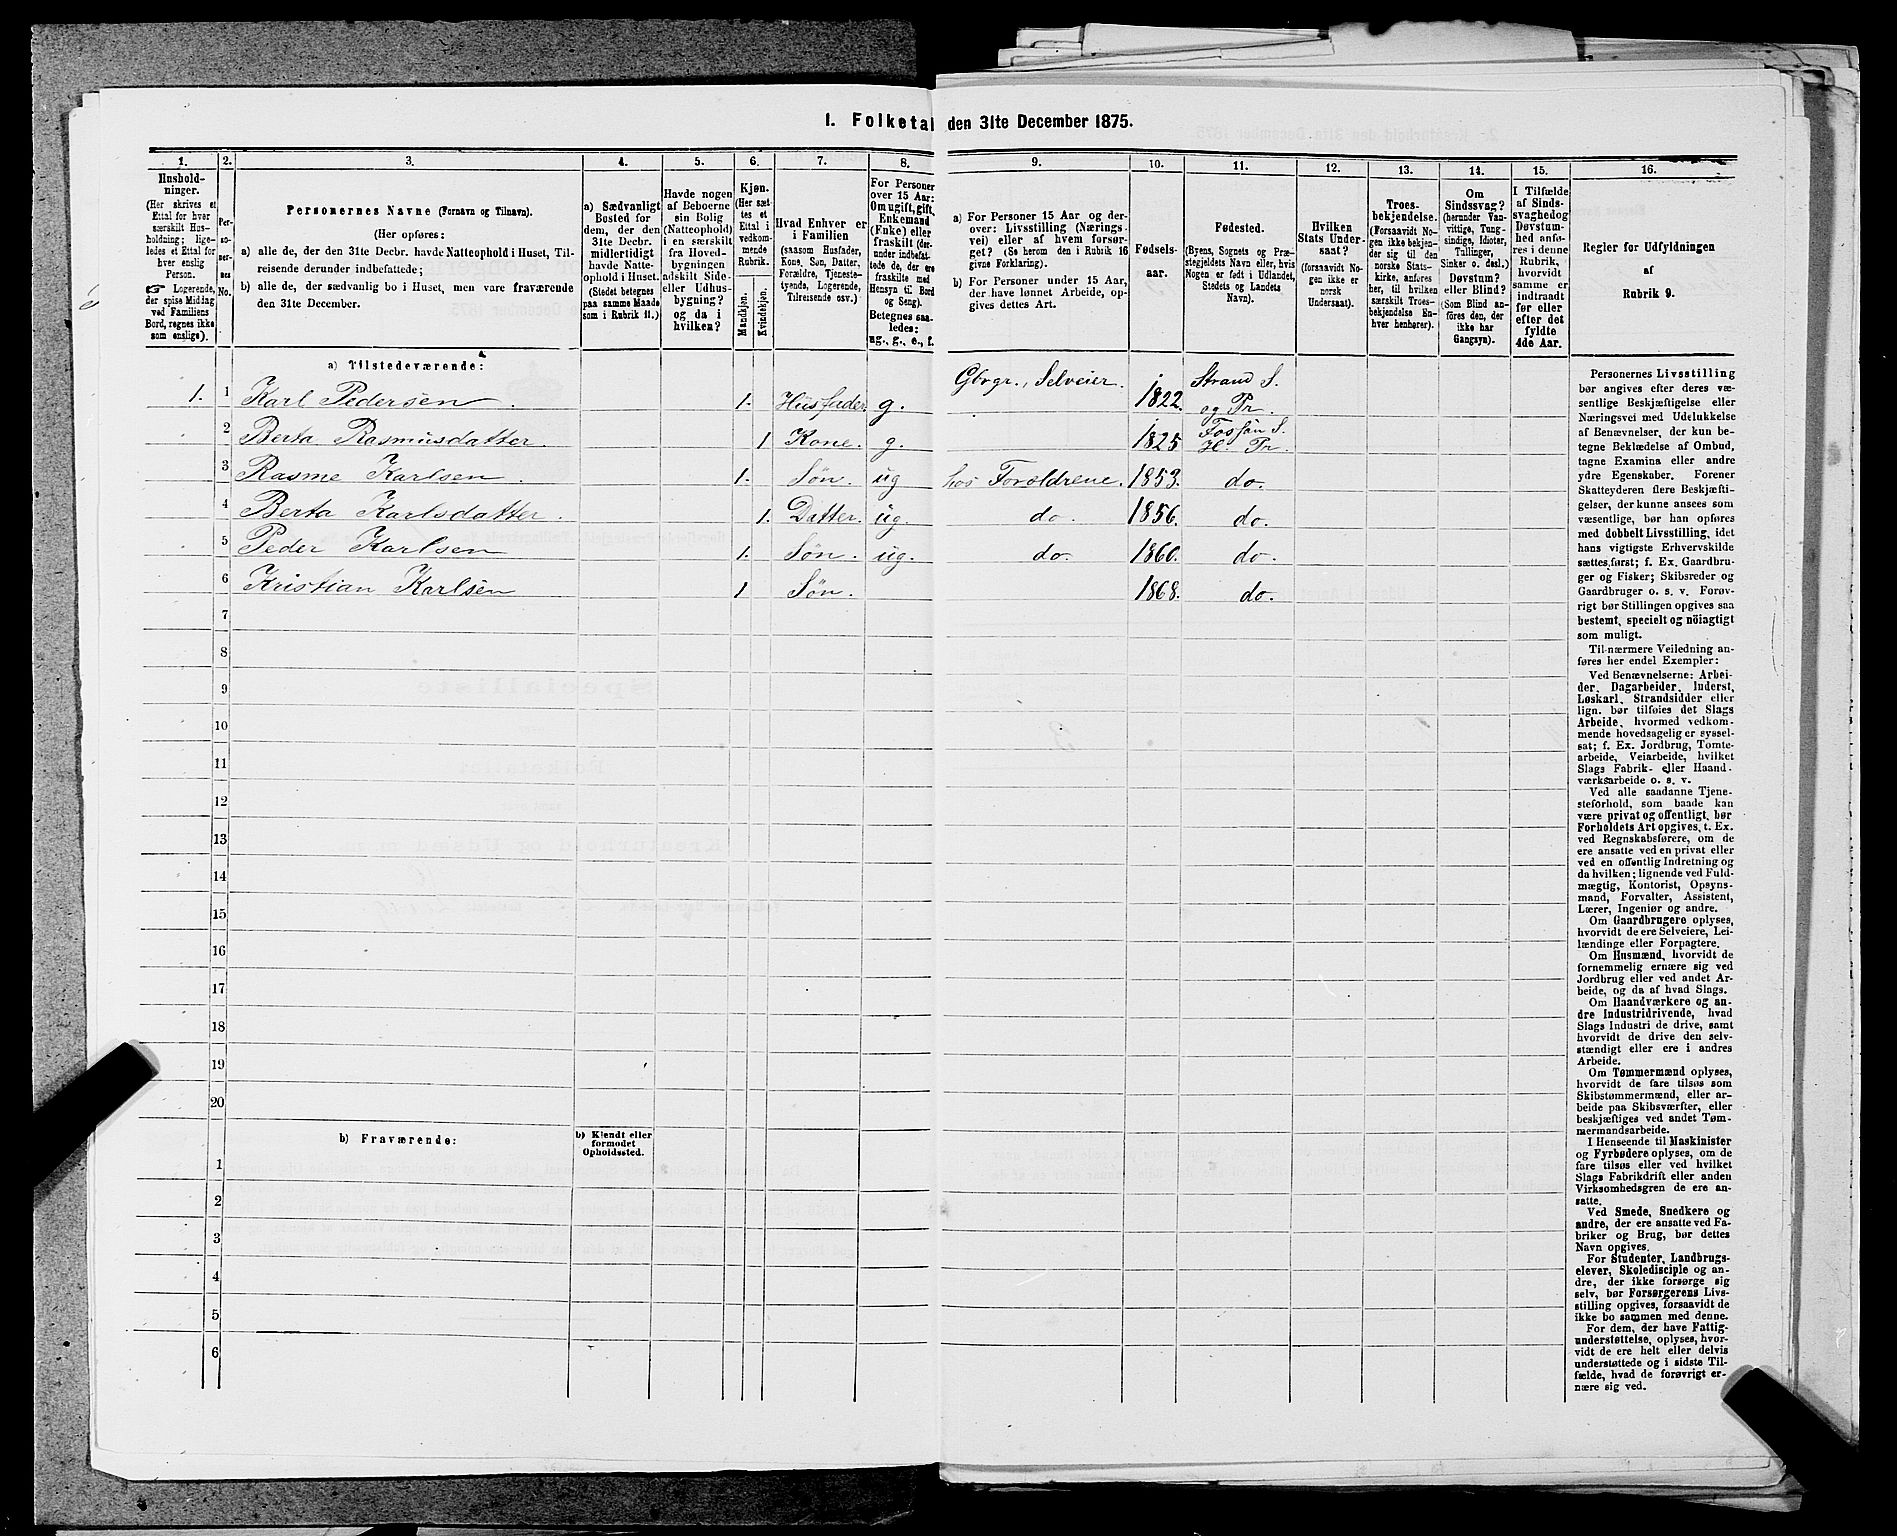 1. Folketal den 31te December 1875.
1.
2.
3.
4.
5.
6.
7.
8.
9.
10.
11.
12.
13.
14.
15.
16.
Hushold-
ninger.
(Her skrives et
Ettal for hver
særskilt Hus-
holdning; lige-
ledes et Ettal for
hver enslig
Person.
☞ Logerende,
der spise Middag
ved Familiens
Bord, regnes ikke
som enslige).
Per-
so-
ner-
nes
No.
Personernes Navne (Fornavn og Tilnavn).
(Her opføres:
a) alle de, der den 31te Decbr. havde Natteophold i Huset, Til-
reisende derunder indbefattede;
b) alle de, der sædvanlig bo i Huset, men vare fraværende
den 31te December.
a) Sædvanligt
Bosted for
dem, der den
31te Decbr.
midlertidigt
havde Natte-
ophold i Huset.
(Stedet betegnes
paa samme Maade
som i Rubrik 11.)
Havde nogen
af Beboerne
sin Bolig
(Natteophold)
i en særskilt
fra Hoved-
bygningen
adskilt Side-
eller Udhus-
bygning?
og da i
hvilken?
Kjøn.
(Her sæt-
tes et
Ettal i
vedkom-
mende
Rubrik.
Mandkjøn.
Kvindekjøn.
Hvad Enhver er
i Familien
(saasom Husfader,
Kone, Søn, Datter,
Forældre, Tjeneste-
tyende, Logerende,
Tilreisende osv.)
For Personer
over 15 Aar:
Om ugift, gift,
Enkemand
(Enke) eller
fraskilt (der-
under indbefat-
tede de, der ere
fraskilte med
Hensyn til Bord
og Seng).
Betegnes saa-
ledes:
ug., g., e., f.
a) For Personer 15 Aar og der-
over: Livsstilling (Nærings-
vei) eller af hvem forsør-
get? (Se herom den i Rubrik 16
givne Forklaring).
b) For Personer under 15 Aar,
der have lønnet Arbeide, op-
gives dettes Art.
Fødsels-
aar.
Fødested.
(Byens, Sognets og Præ-
stegjeldets Navn eller, hvis
Nogen er født i Udlandet,
Stedets og Landets
Navn).
Hvilken
Stats Under-
saat?
(forsaavidt No-
gen ikke er
norsk
Undersaat).
Troes-
bekjendelse.
(Forsaavidt No-
gen ikke bekjen-
der sig til den
norske Stats-
kirke, anføres
her, til hvilken
særskilt Troes-
bekjendelse En-
hver henhører).
Om
Sindssvag?
(herunder Van-
vittige, Tung-
sindige, Idioter,
Tullinger,
Sinker o. desl.)
Døvstum?
eller Blind?
(Som Blind an-
føres den, der
ikke har
Gangsyn).
I Tilfælde
af Sinds-
svaghed og
Døvstum-
hed anfø-
res i denne
Rubrik,
hvorvidt
samme er
indtraadt
før eller
efter det
fyldte
4de Aar.
Regler for Udfyldningen
af
Rubrik 9.
a) Tilstedeværende:
1. 1 Karl Pedersen 1. Husfader. g. Gbrgr., Selveier. 1822. Strand S.
og Pr.
2 Berta Rasmusdatter. 1 Kone. g. 1825 Fossan S.
H. Pr.
3 Rasme Karlsen 1. Søn. ug hos Forældrene. 1853. do.
4 Berta Karlsdatter. 1. Datter. ug. do. 1856. do.
5 Peder Karlsen 1. Søn. ug. do. 1860. do.
6 Kristian Karlsen 1 Søn. 1868. do.
7
8
9
10
11
12
13
14
15
16
17
18
19
20
b) Fraværende:
b) Kjendt eller
formodet
Opholdssted.
1
2
3
4
5
6
Personernes Livsstilling
bør angives efter deres væ-
sentlige Beskjæftigelse eller
Næringsvei med Udelukkelse
af Benævnelser, der kun be-
tegne Beklædelse af Ombud,
tagne Examina eller andre
ydre Egenskaber. Forener
Skatteyderen flere Beskjæfti-
gelser, der kunne ansees som
væsentlige, bør han opføres
med dobbelt Livsstilling, idet
hans vigtigste Erhvervskilde
sættes først; f. Ex. Gaardbru-
ger og Fisker; Skibsreder og
Gaardbruger o. s. v. Forøv-
rigt bør Stillingen opgives saa
bestemt, specielt og nöiagtigt
som muligt.
Til nærmere Veiledning an-
føres her endel Exempler:
Ved Benævnelserne: Arbei-
der, Dagarbeider, Inderst,
Løskarl, Strandsidder eller
lign. bør tilføies det Slags
Arbeide, hvormed vedkom-
mende hovedsagelig er syssel-
sat; f. Ex. Jordbrug, Tomte-
arbeide, Veiarbeide, hvilket
Slags Fabrik- eller Haand-
værksarbeide o. s. v.
Ved alle saadanne Tjene-
steforhold, som baade kan
være privat og offentligt, bør
Forholdets Art opgives, t. Ex.
ved Regnskabsførere, om de
ere ansatte ved en privat eller
ved en offentlig Indretning og
da hvilken; lignende ved Fuld-
mægtig, Kontorist, Opsyns-
mand, Forvalter, Assistent,
Lærer, Ingeniør og andre.
Om Gaardbrugere oplyses,
hvorvidt de ere Selveiere, Lei-
lændinge eller Forpagtere.
Om Husmænd, hvorvidt de
fornemmelig ernære sig ved
Jordbrug eller ved andet Ar-
beide, og da af hvad Slags.
Om Haandværkere og an-
dre Industridrivende, hvad
Slags Industri de drive, samt
hvorvidt de drive den selv-
stændigt eller ere i andres
Arbeide.
Om Tømmermænd oplyses,
hvorvidt de fare tilsøs som
Skibstømmermænd, eller ar-
beide paa Skibsværfter, eller
beskjæftiges ved andet Tøm-
mermandsarbeide.
I Henseende til Maskinister
og Fyrbødere oplyses, om de
fare tilsøs eller ved hvilket
Slags Fabrikdrift eller anden
Virksomhedsgren de ere an-
satte.
Ved Smede, Snedkere og
andre, der ere ansatte ved Fa-
briker og Brug, bør dettes
Navn opgives.
For Studenter, Landbrugs-
elever, Skoledisciple og an-
dre, der ikke forsørge sig
selv, bør Forsørgerens Livs-
stilling opgives, forsaavidt de
ikke bo sammen med denne.
For dem, der have Fattig-
understøttelse, oplyses, hvor-
vidt de ere helt eller delvis
understøttede og i sidste Til-
fælde, hvad de forøvrigt er-
nære sig ved.